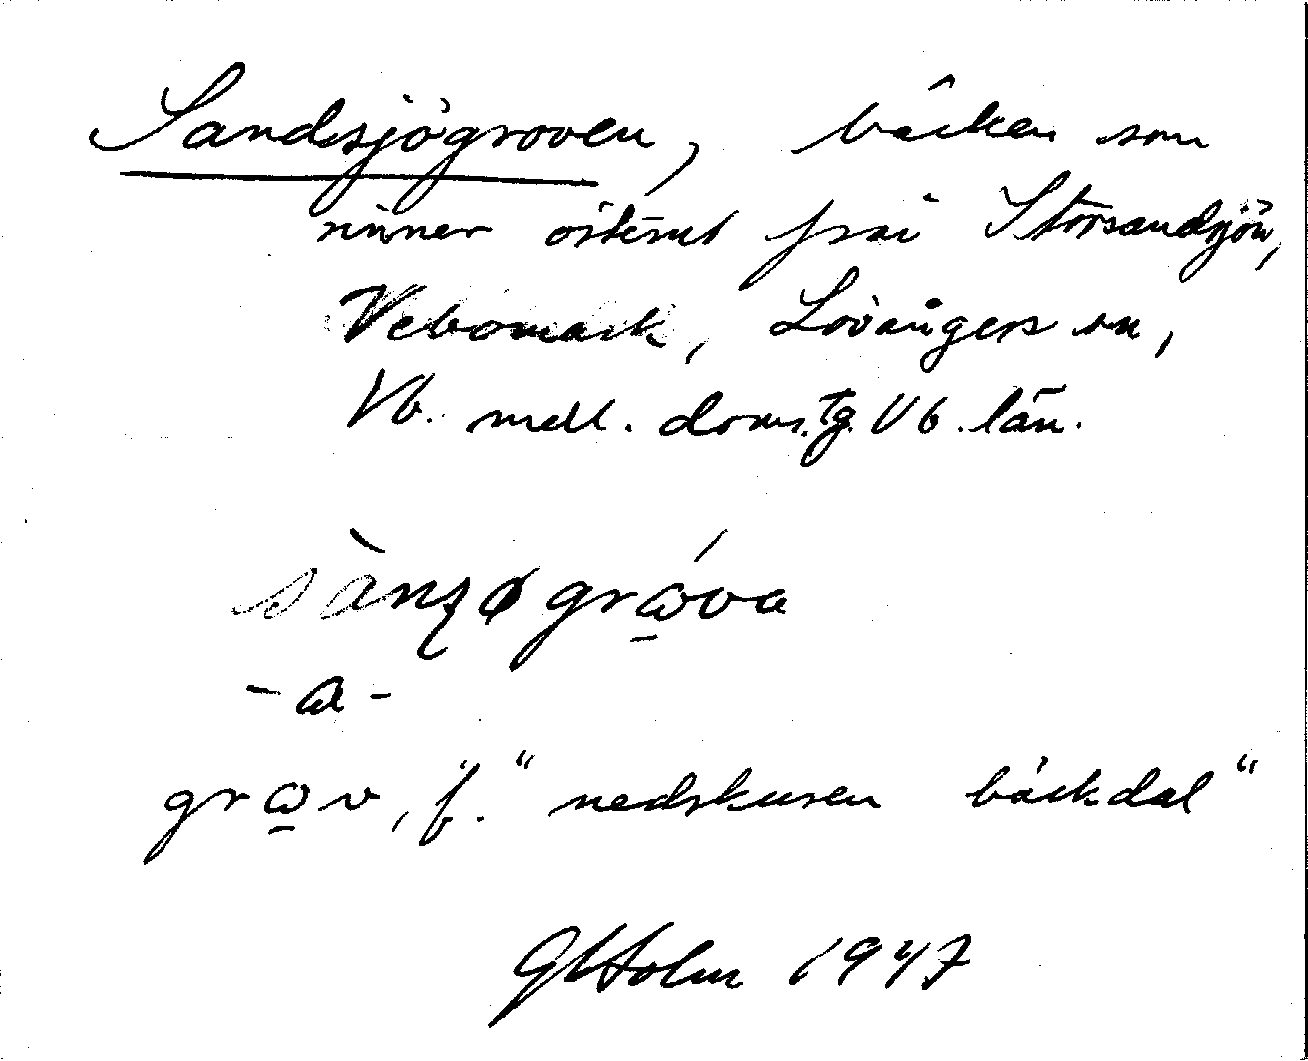 Sandsjögroven, bäcken som
rinner österut från Storsandsjön,
Vebomark, Lövångers sn,
Vb. mell. doms.tg. Vb. län.
sànʒøgrώ̱va
-a-
grω̱v, f. "nedskuren bäckdal"
G Holm 1947